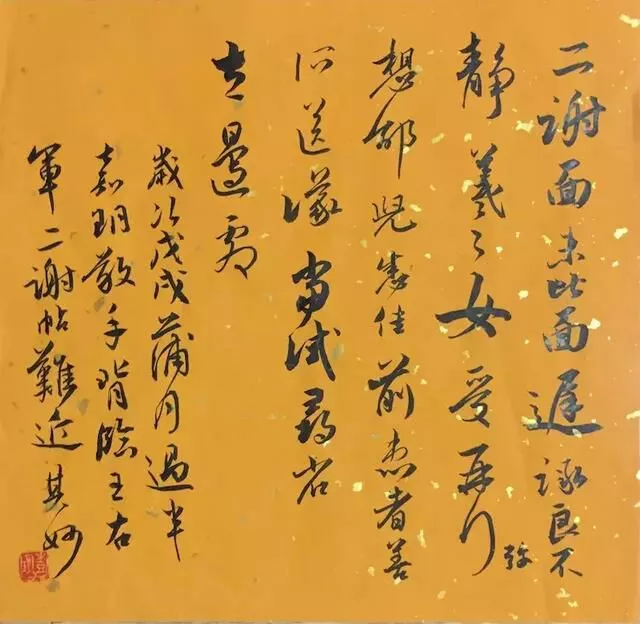 二謝面未比面遲詠良不
靜羲之女愛再拜
想邰兒悉佳前患者善
所送議當試尋省
左邊劇
歲次戊戌蒲月過半
嘉玥敬手背臨王右
軍二謝帖難近其妙